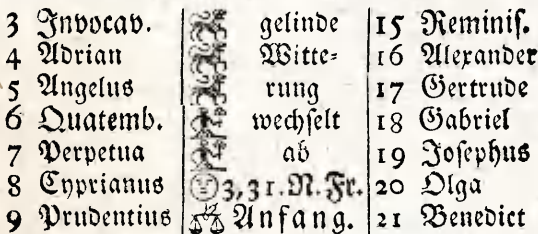 3 Invocav. gelinde 15 Reminiſ.
4 Adrian Witte⸗ 16 Alexander
5 Angelus rung 17 Gertrude
6 Quatemb. wechſelt 18 Gabriel
7 Perpetua ab 19 Joſephus
8 Cyprianus 3, 31. N. Fr. 20 Olga
9 Prudentius Anfang. 21 Benedict